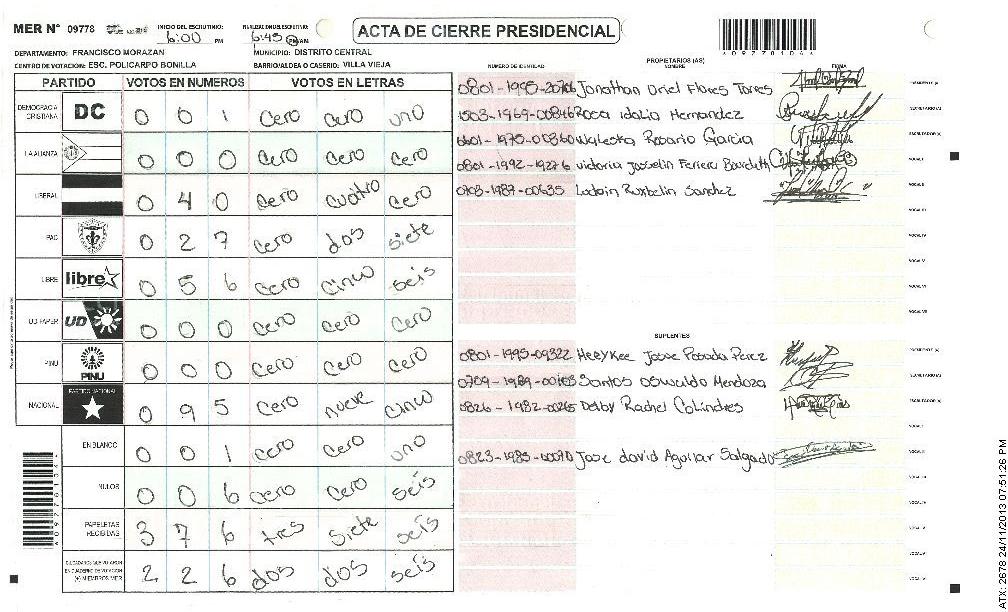 MER N° 09778
INICIO DEL ESCRUTINIO:
6:00 PM
6:45 PM/AM.
ACTA DE CIERRE PRESIDENCIAL
*09778104*
DEPARTAMENTO: FRANCISCO MORAZAN
MUNICIPIO: DISTRITO CENTRAL
CENTRO DE VOTACION: ESC. POLICARPO BONILLA
BARRIO/ALDEA O CASERIO: VILLA VIEJA
PARTIDO VOTOS EN NUMEROS VOTOS EN LETRAS
DEMOCRACIA CRISTIANA DC 0 0 1 Cero Cero uno
LA ALIANZA 0 0 0 Cero Cero Cero
LIBERAL 0 4 0 Cero Cuatro Cero
PAC 0 2 7 Cero dos siete
LIBRE libre 0 5 6 Cero Cinco seis
UD FAPER UD 0 0 0 Cero Cero Cero
PINU PINU 0 0 0 Cero Cero Cero
NACIONAL PARTIDO NACIONAL 0 9 5 Cero nueve Cinco
EN BLANCO 0 0 1 Cero Cero uno
NULOS 0 0 6 Cero Cero seis
PAPELETAS RECIBIDAS 3 7 6 tres siete seis
CIUDADANOS QUE VOTARON EN CUADERNO DE VOTACION (+) MIEMBROS MER 2 2 6 dos dos seis
PROPIETARIOS (AS)
NUMERO DE IDENTIDAD NOMBRE FIRMA
0801-1995-20706 Jonathan Oriel Flores Torres
1503-1969-00846 Rosa idalia Hernandez
0601-1975-00360 Waleska Rosario Garcia
0801-1992-19276 victoria Josselin Ferrera
0703-1987-00635 Sanchez
SUPLENTES
0801-1995-09322 Jose Posada Perez
0709-1989-00103 Santos Oswaldo Mendoza
0826-1982-00265 Delby Rachel Colindres
0823-1985-00070 Jose david Aguilar Salgado
ATX: 2678 24/11/2013 07:51:26 PM